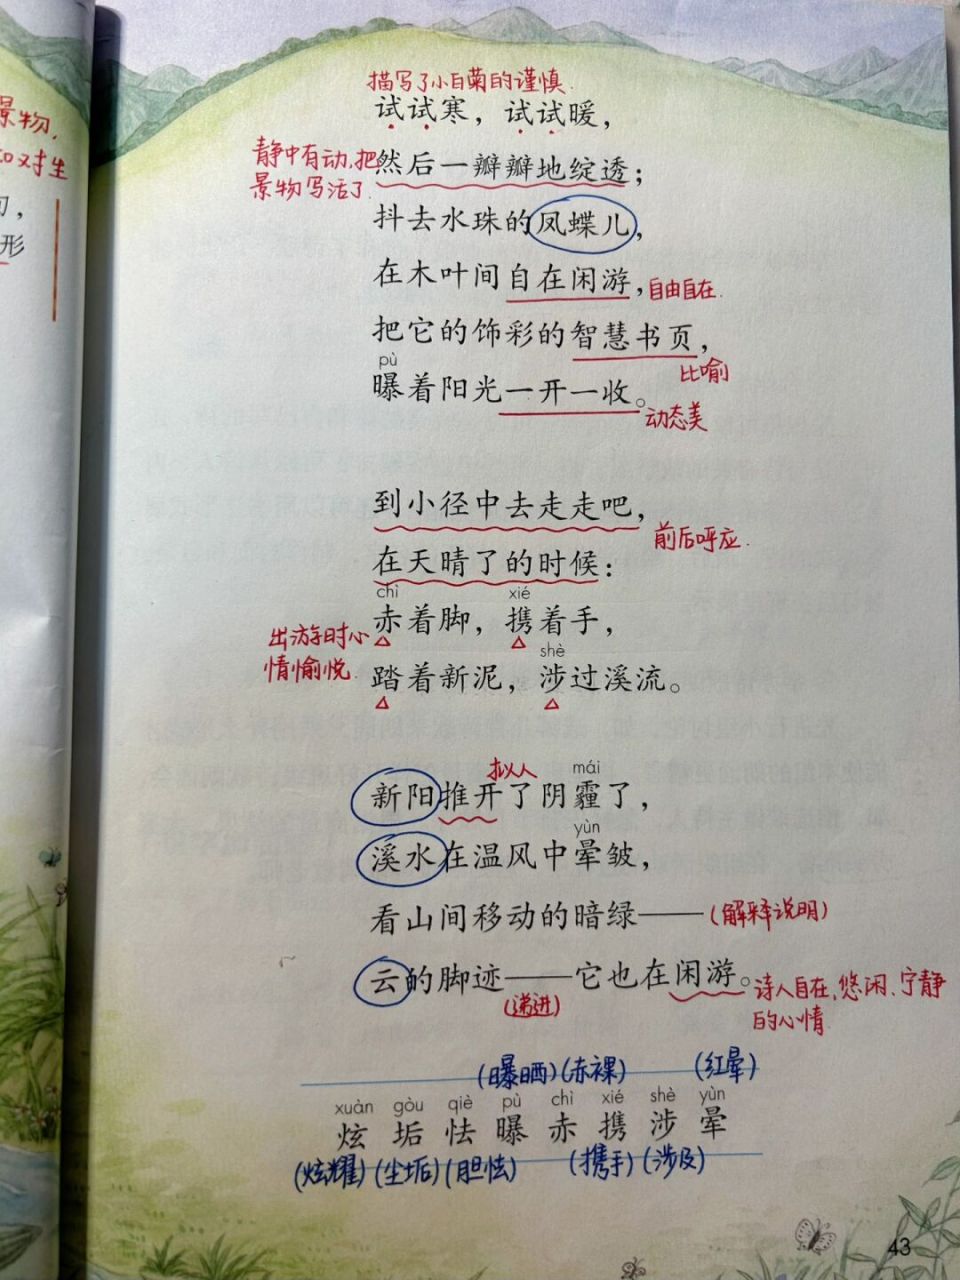 景物,
对生
,
形
描写了小白菊的谨慎
试试寒，试试暖，
静中有动,把
景物写活了
然后一瓣瓣地绽透；
抖去水珠的凤蝶儿，
在木叶间自在闲游，
自由自在
把它的饰彩的智慧书页，
比喻
pù
曝着阳光一开一收。
动态美
到小径中去走走吧，
前后呼应
在天晴了的时候：
chì xié
赤着脚，携着手，
出游时心
情愉悦
shè
踏着新泥，涉过溪流。
拟人
mái
新阳推开了阴霾了，
yùn
溪水在温风中晕皱，
看山间移动的暗绿——
(解释说明)
云的脚迹——它也在闲游。
(递进)
诗人自在、悠闲、宁静
的心情
(曝晒)(赤裸) (红晕)
xuàn gòu qiè pù chì xié shè yùn
炫 垢 怯 曝 赤 携 涉 晕
(炫耀)(尘垢)(胆怯) (携手)(涉及)
43